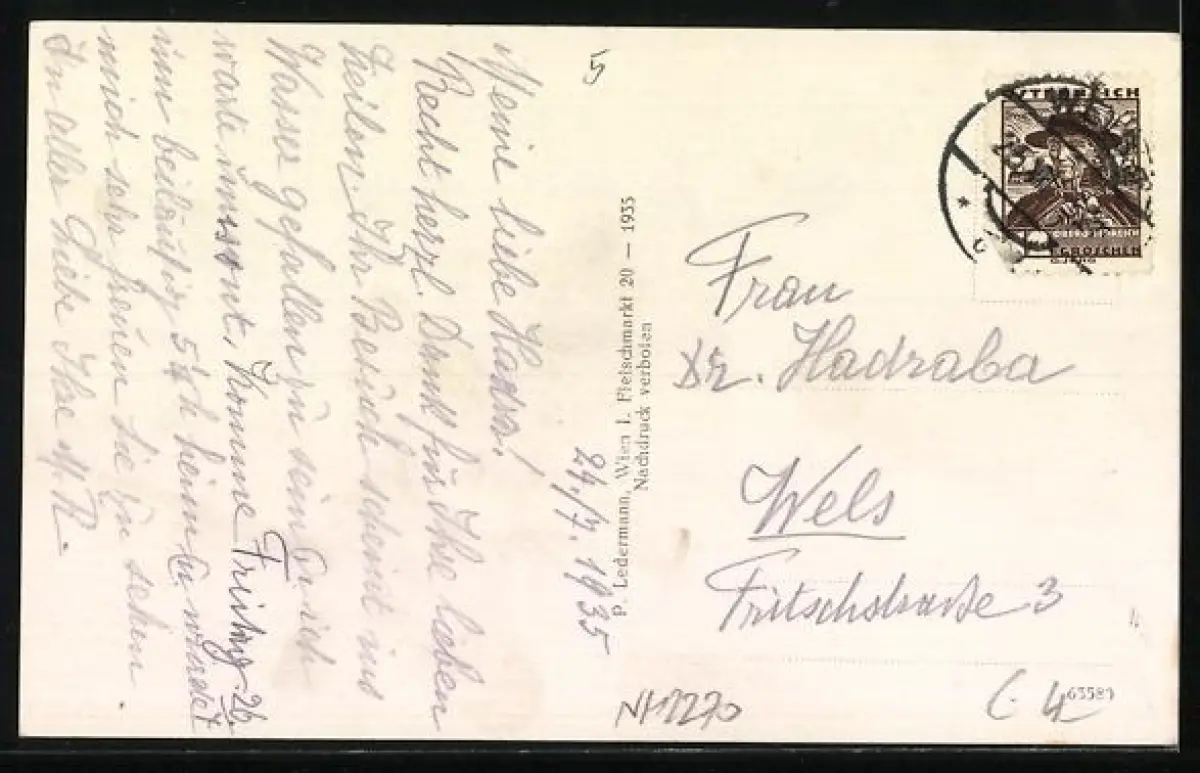 Meine liebe Hadra!
Recht herzl. Dank für Ihre lieben
Zeilen. Ihr Besuch scheint ins
Wasser gefallen zu sein da ich
warte umsonst. Komme Freitag 26./7
um beiläufig 5 h heim u. würde
mich sehr freuen Sie zu sehen.
In aller Liebe Ihre M. R.
24./7. 1935
5
P. Ledermann, Wien I. Fleischmarkt 20 — 1935
Nachdruck verboten
ÖSTERREICH
OBERÖSTERREICH
GROSCHEN
Frau
Dr. Hadraba
Wels
Fritschstraße 3
63589